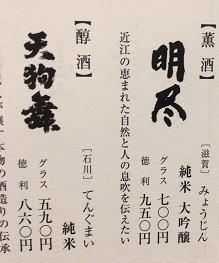 【薫酒】
明尽
［滋賀］みょうじん
純米 大吟醸
グラス 七〇〇円
徳利 九五〇円
近江の恵まれた自然と人の息吹を伝えたい
【醇酒】
天狗舞
［石川］てんぐまい
純米
グラス 五九〇円
徳利 八六〇円
物の酒造りの伝承